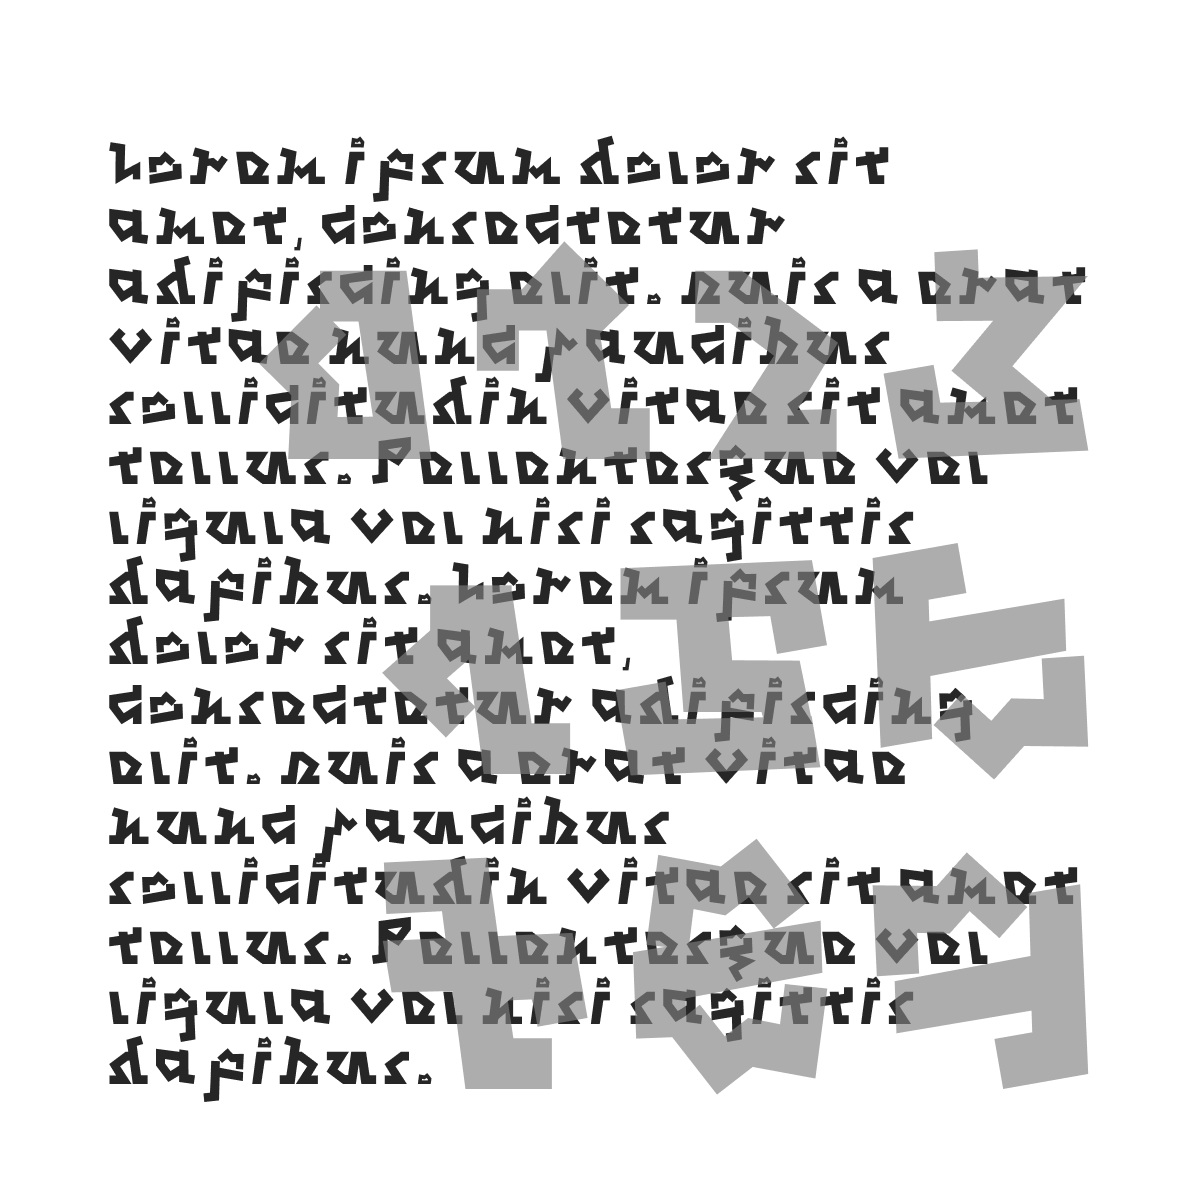 Lorem ipsum dolor sit
amet, consectetur
adipiscing elit. Duis a erat
vitae nunc faucibus
sollicitudin vitae sit amet
tellus. Pellentesque vel
ligula vel nisi sagittis
dapibus. Lorem ipsum
dolor sit amet,
consectetur adipiscing
elit. Duis a erat vitae
nunc faucibus
sollicitudin vitae sit amet
tellus. Pellentesque vel
ligula vel nisi sagittis
dapibus.
0123
456
789